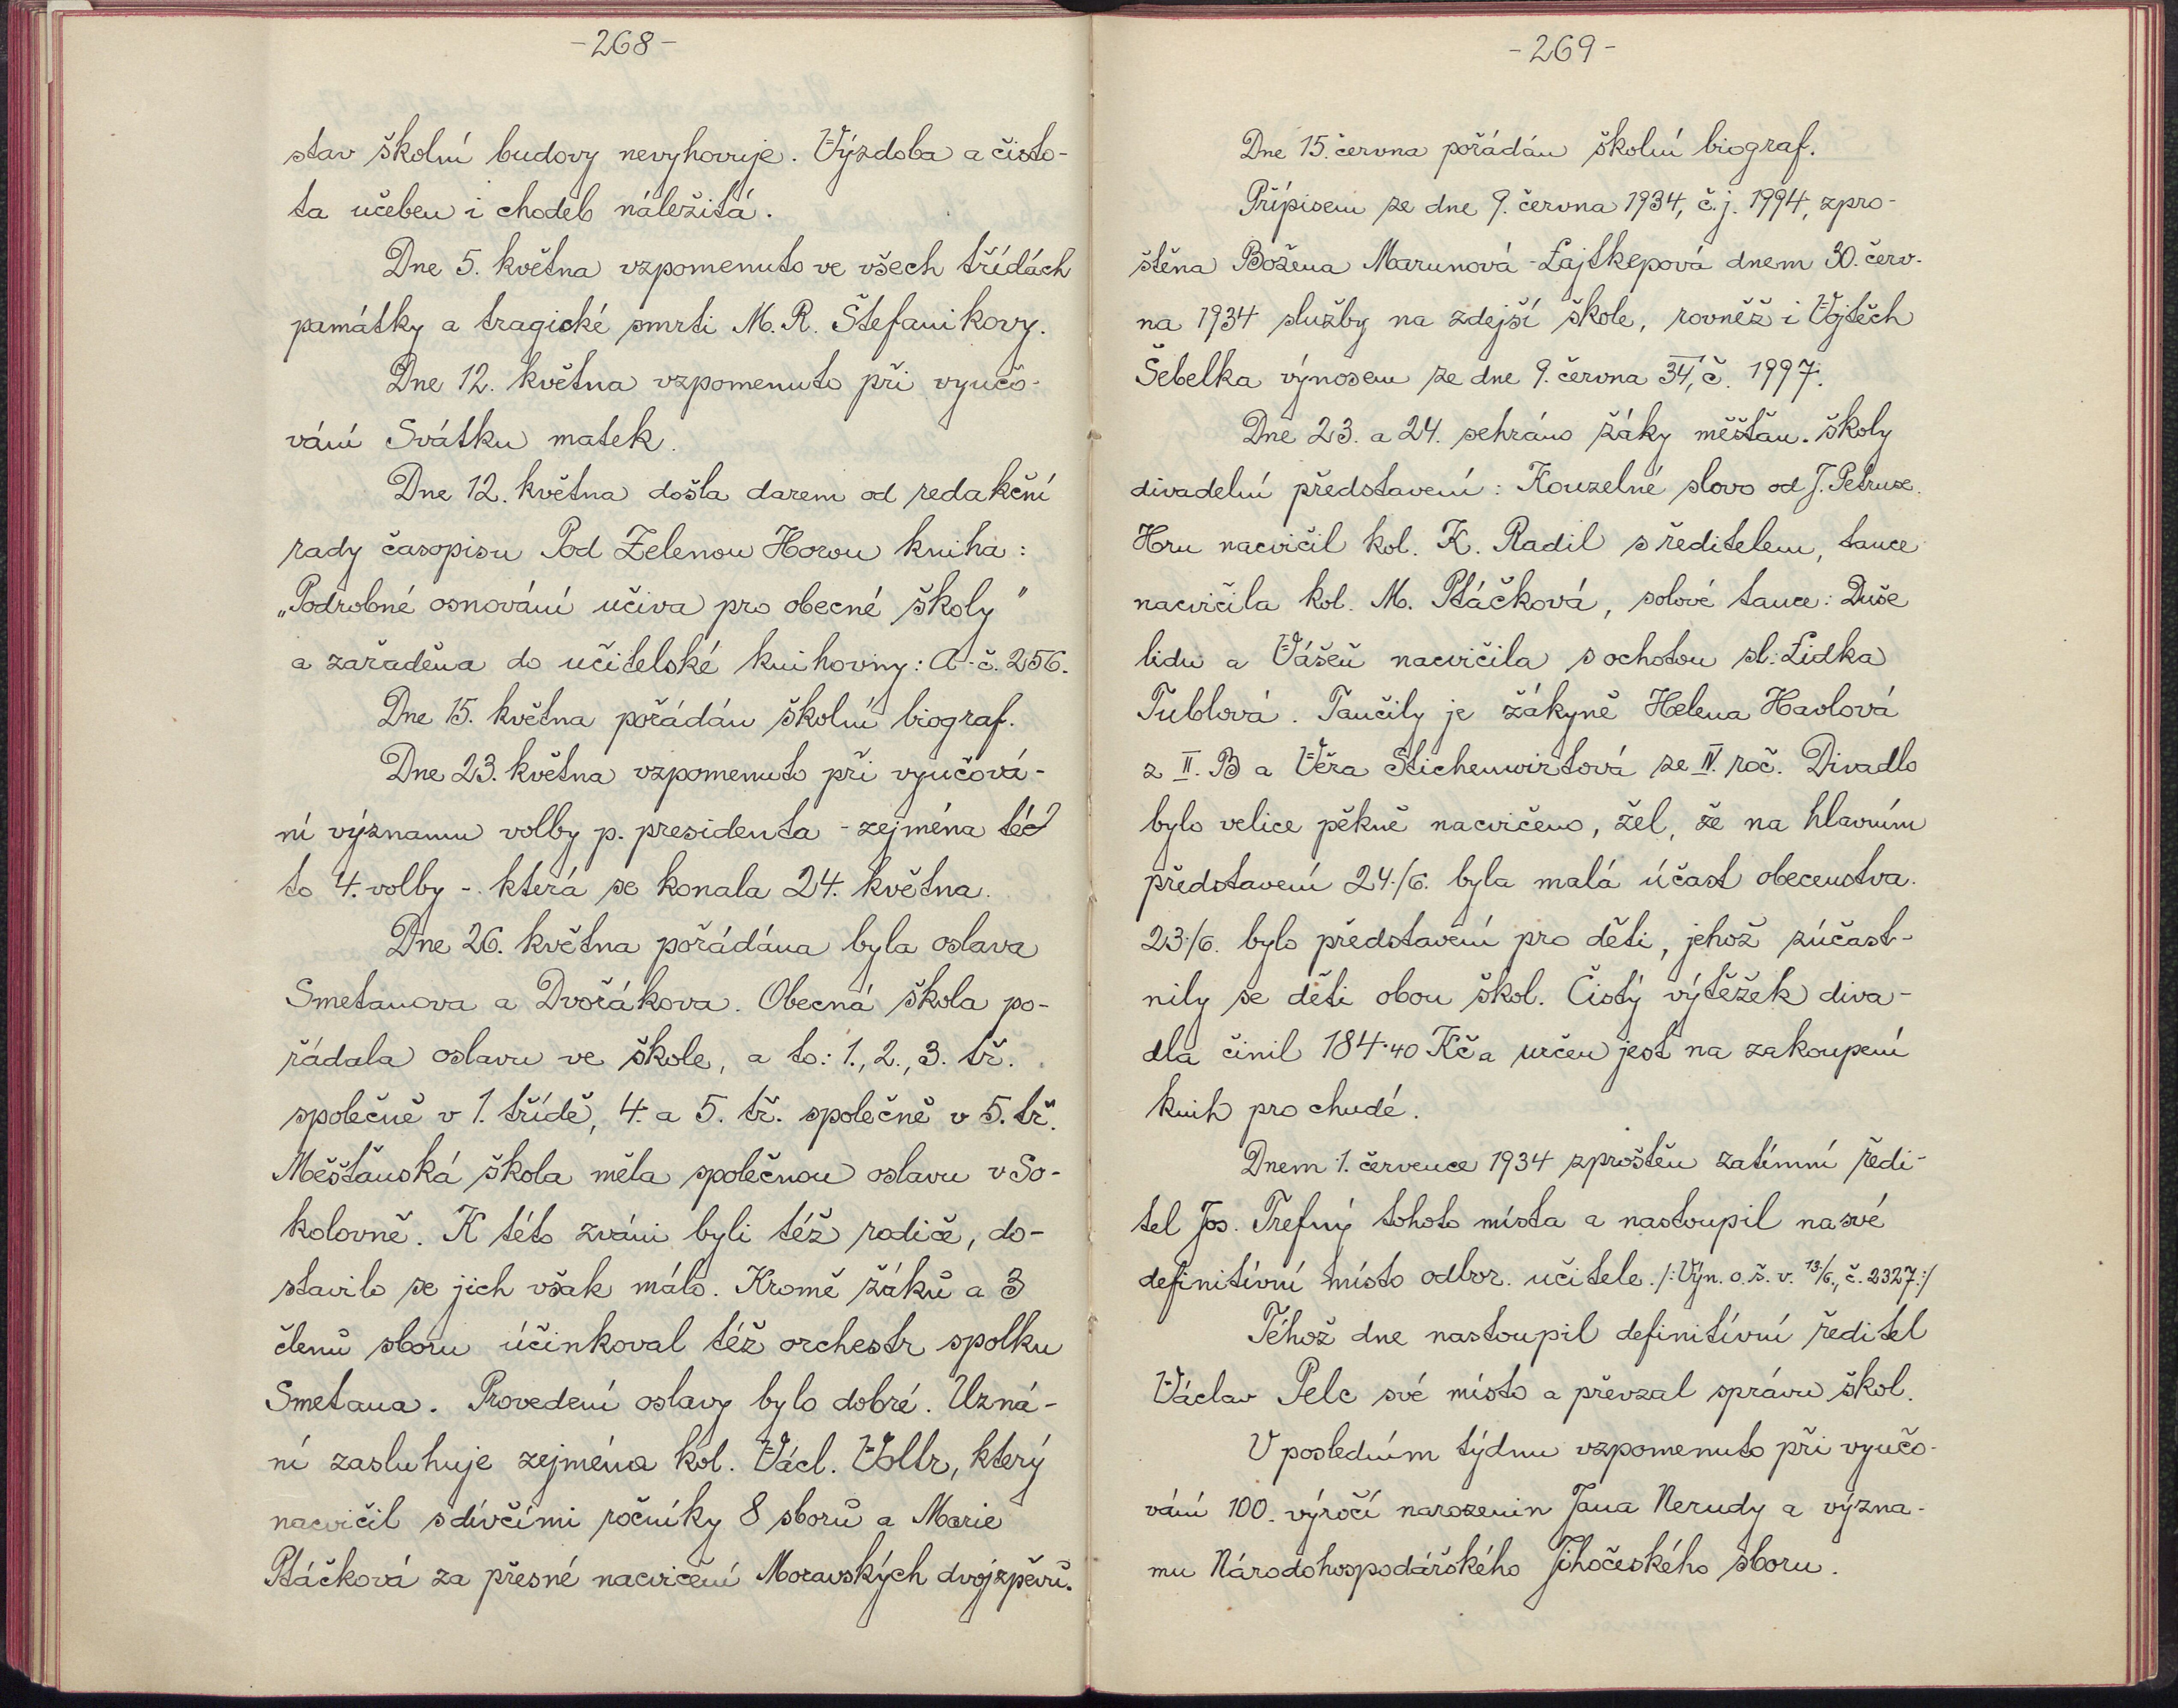 -268-
stav školní budovy nevyhovuje. Výzdoba a čisto-
ta učeben i chodeb náležitá.
Dne 5. května vzpomenuto ve všech třídách
památky a tragické smrti M. R. Štefanikovy.
Dne 12. května vzpomenuto při vyučo-
vání Svátku matek.
Dne 12. května došla darem od redakční
rady časopisu Pod Zelenou Horou kniha:
„Podrobné osnování učiva pro obecné školy"
a zařaděna do učitelské knihovny: A-č. 256.
Dne 15. května pořádán školní biograf.
Dne 23. května vzpomenuto při vyučová-
ní významu volby p. presidenta - zejména té
to 4. volby - která se konala 24. května.
Dne 26. května pořádána byla oslava
Smetanova a Dvořákova. Obecná škola po-
řádala oslavu ve škole, a to: 1., 2., 3. tř.
společně v 1. třídě, 4. a 5. tř. společně v 5. tř.
Měšťanská škola měla společnou oslavu v So-
kolovně. K této zváni byli též rodiče, do-
stavilo se jich však málo. Kromě žáků a 3
členů sboru účinkoval též orchestr spolku
Smetana. Provedení oslavy bylo dobré. Uzná-
ní zasluhuje zejména kol. Václ. Voltr, který
nacvičil s dívčími ročníky 8 sborů a Marie
Ptáčková za přesné nacvičení Moravských dvojzpěvů.
-269-
Dne 15. června pořádán školní biograf.
Přípisem ze dne 9. června 1934, č. j. 1994, zpro-
štěna Božena Marunová-Lajtkepová dnem 30. červ-
na 1934 služby na zdejší škole, rovněž i Vojtěch
Šebelka výnosem ze dne 9. června 34, č. 1997.
Dne 23. a 24. sehráno žáky měšťan. školy
divadelní představení: Kouzelné slovo od J. Petruse.
Hru nacvičil kol. K. Radil s ředitelem, tance
nacvičila kol. M. Ptáčková, solové tance: Duše
lidu a Vášeň nacvičila s ochotou sl. Lidka
Tublová. Tančily je žákyně Helena Havlová
z II. B a Věra Stichenwirtová ze IV. roč. Divadlo
bylo velice pěkně nacvičeno, žel, že na hlavním
představení 24./6. byla malá účast obecenstva.
23./6. bylo představení pro děti, jehož zúčast-
nily se děti obou škol. Čistý výtěžek diva-
dla činil 184·40 Kč a určen jest na zakoupení
knih pro chudé.
Dnem 1. července 1934 zproštěn zatímní ředi-
tel Jos. Trefný tohoto místa a nastoupil na své
definitívní místo odbor. učitele. /: Výn. o. š. v. 13/6., č. 2327.:/
Téhož dne nastoupil definitívní ředitel
Václav Pelc své místo a převzal správu škol.
V posledním týdnu vzpomenuto při vyučo-
vání 100. výročí narozenin Jana Nerudy a význa-
mu Národohospodářského Jihočeského sboru.